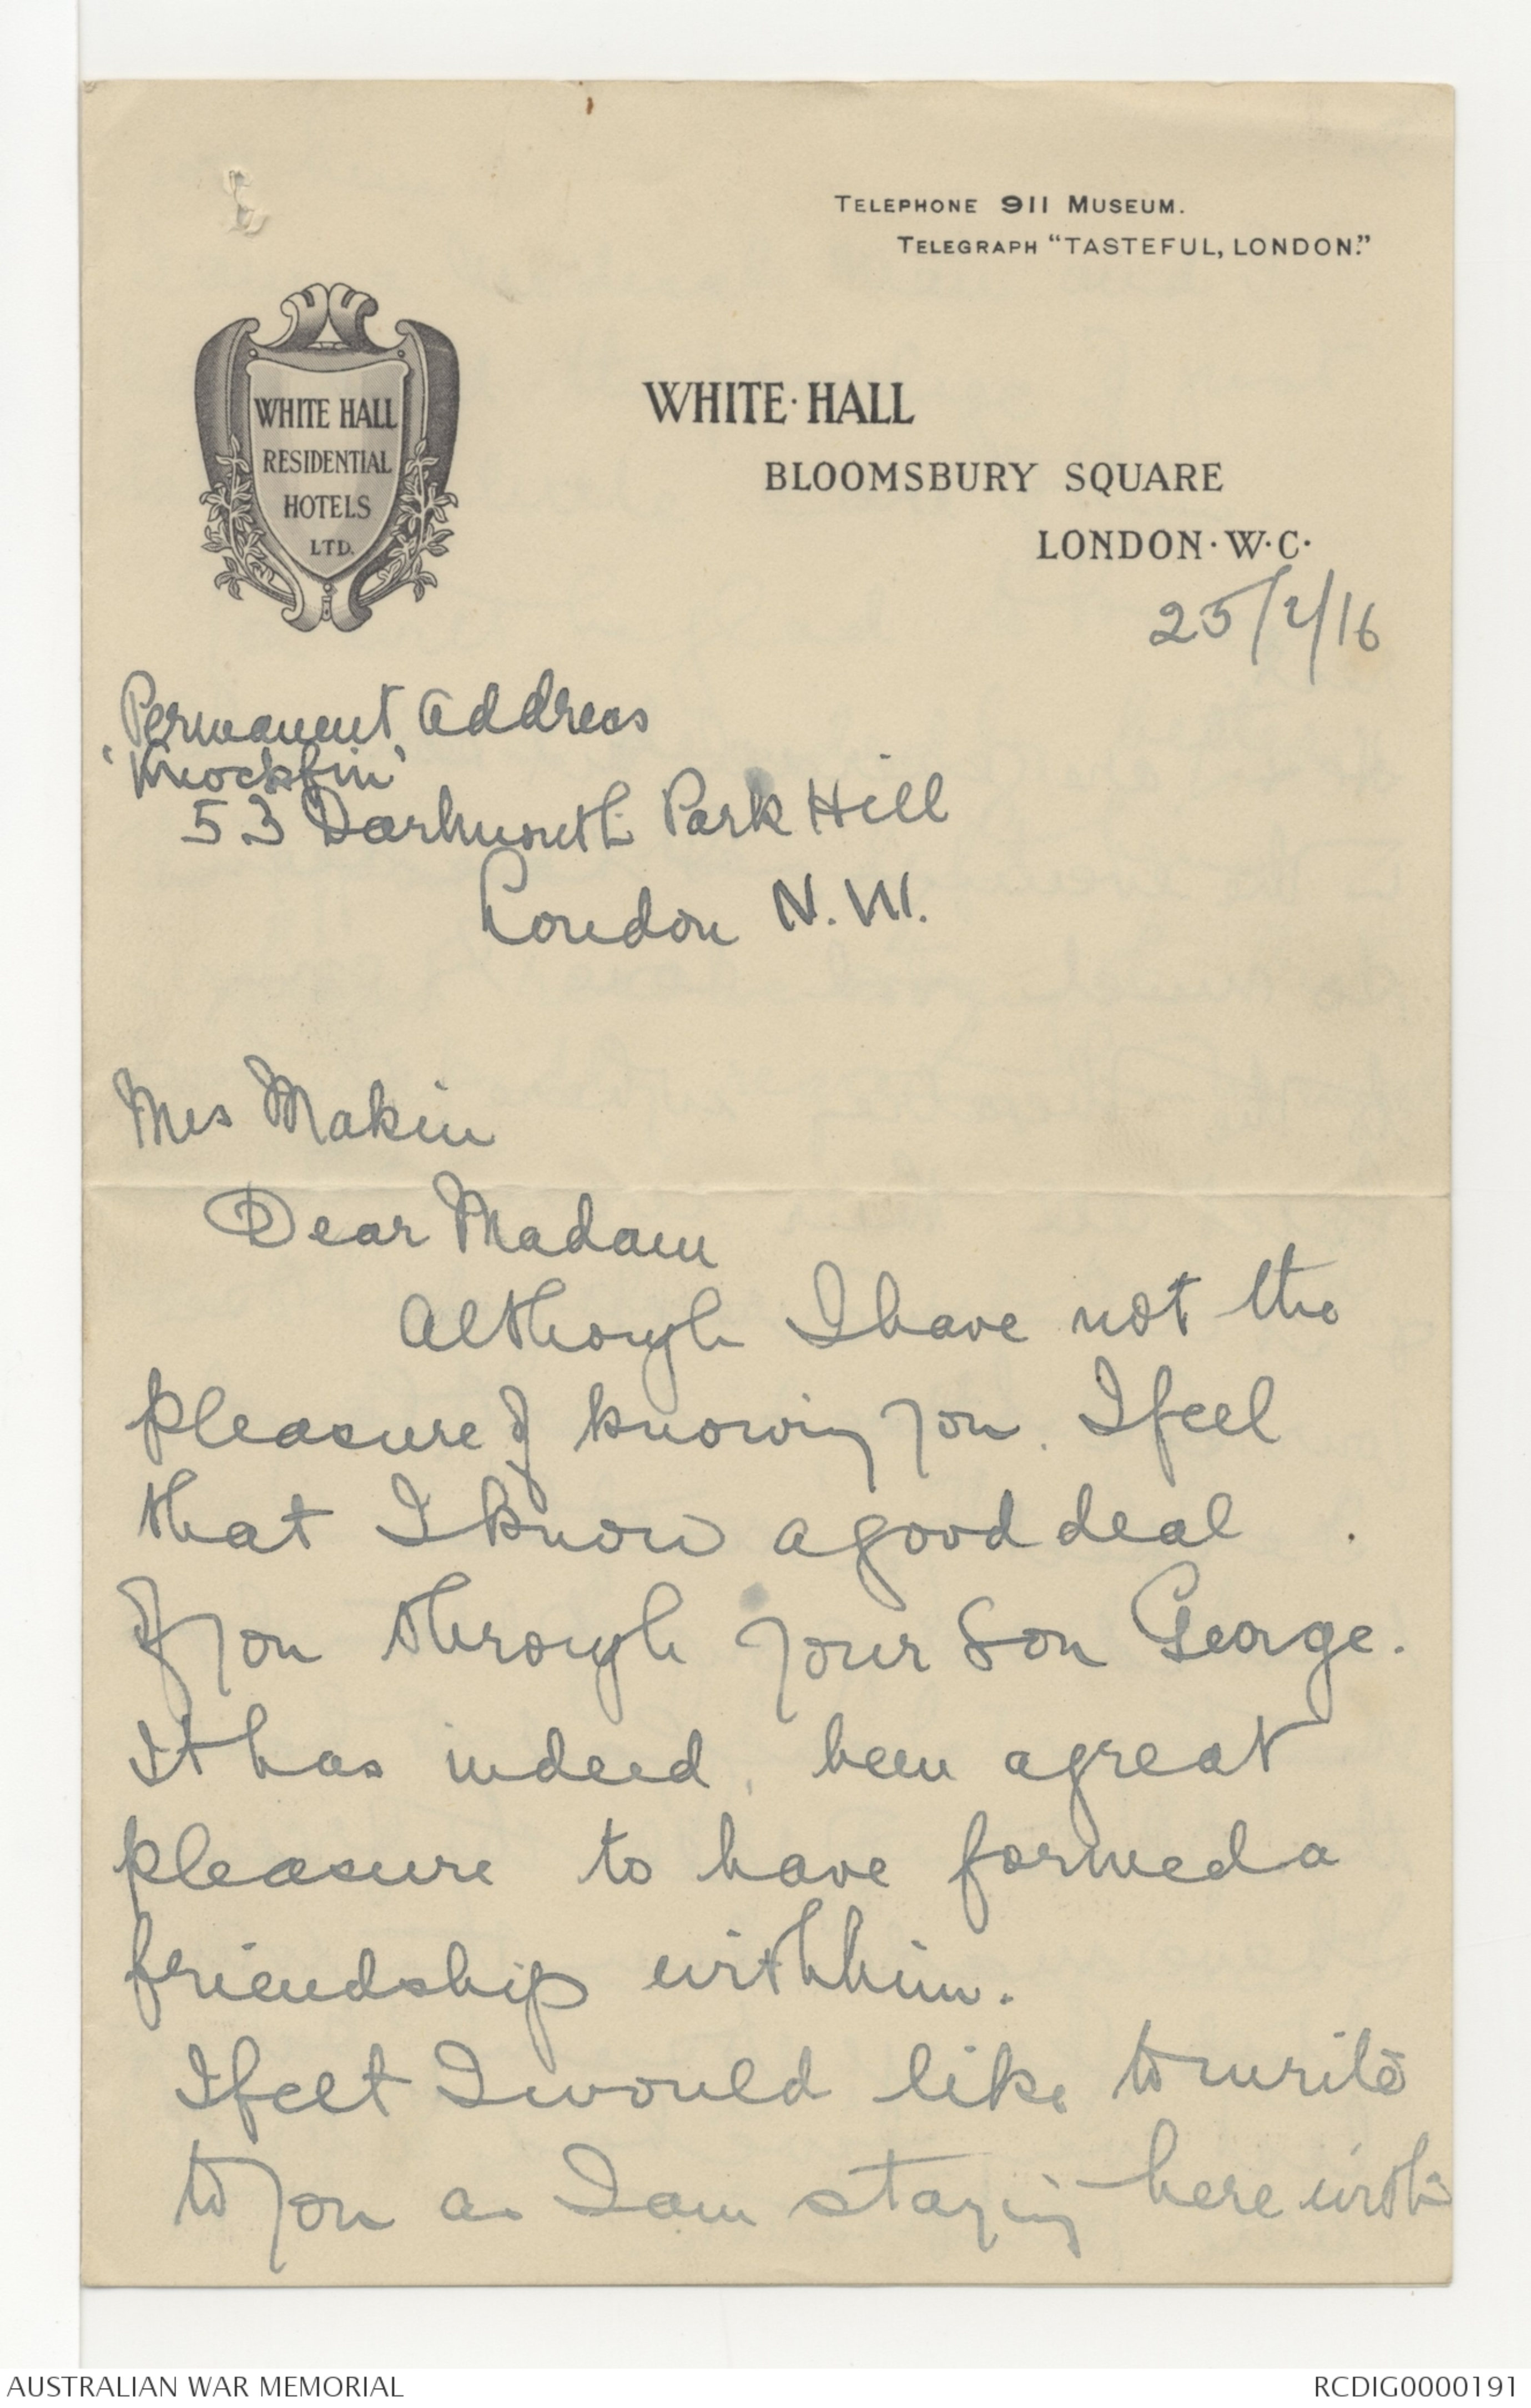 TELEPHONE 911 MUSEUM.
TELEGRAPH "TASTEFUL, LONDON."
WHITE HALL
RESIDENTIAL
HOTELS
LTD.
WHITE·HALL
BLOOMSBURY SQUARE
LONDON·W·C·
25/2/16
Permanent Address
'Knockfin'
53 Dartmouth Park Hill
London N.W.
Mrs Makin
Dear Madam
Although I have not the
pleasure of knowing you. I feel
that I know a good deal
of you through your Son George.
It has indeed, been a great
pleasure to have formed a
friendship with him.
I felt I would like to write
to you as I am staying here with
AUSTRALIAN WAR MEMORIAL
RCDIG0000191